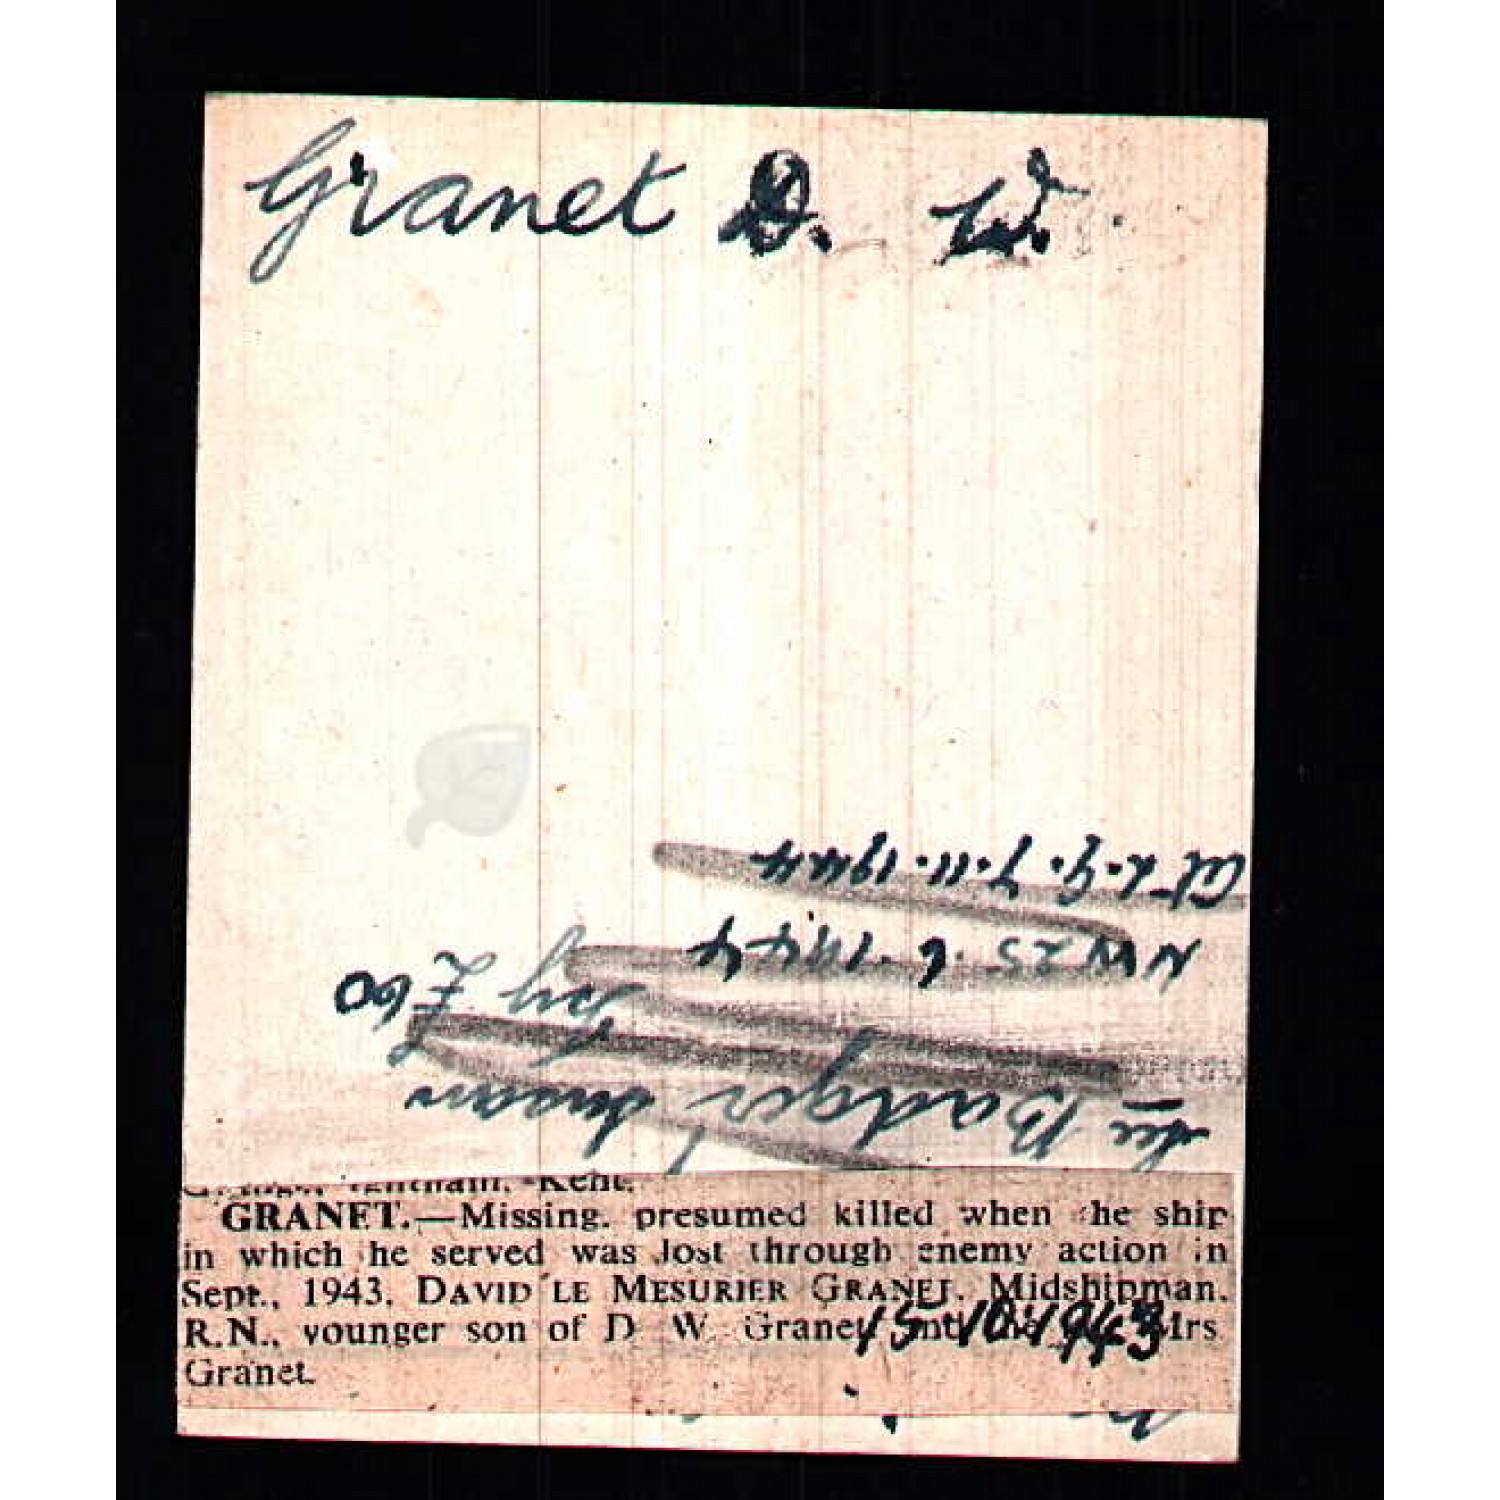 Granet D. W.
Ct L.G. 7.11.1944
NW 23.6.1944
by £60
Badger
Kent.
GRANET.—Missing. presumed killed when the ship
in which he served was lost through enemy action in
Sept., 1943. DAVID LE MESURIER GRANET. Midshipman.
R.N., younger son of D W Granet Mrs
15.10.1943
Granet.